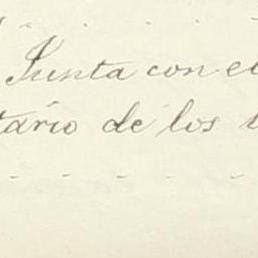 Junta con el
tario de los